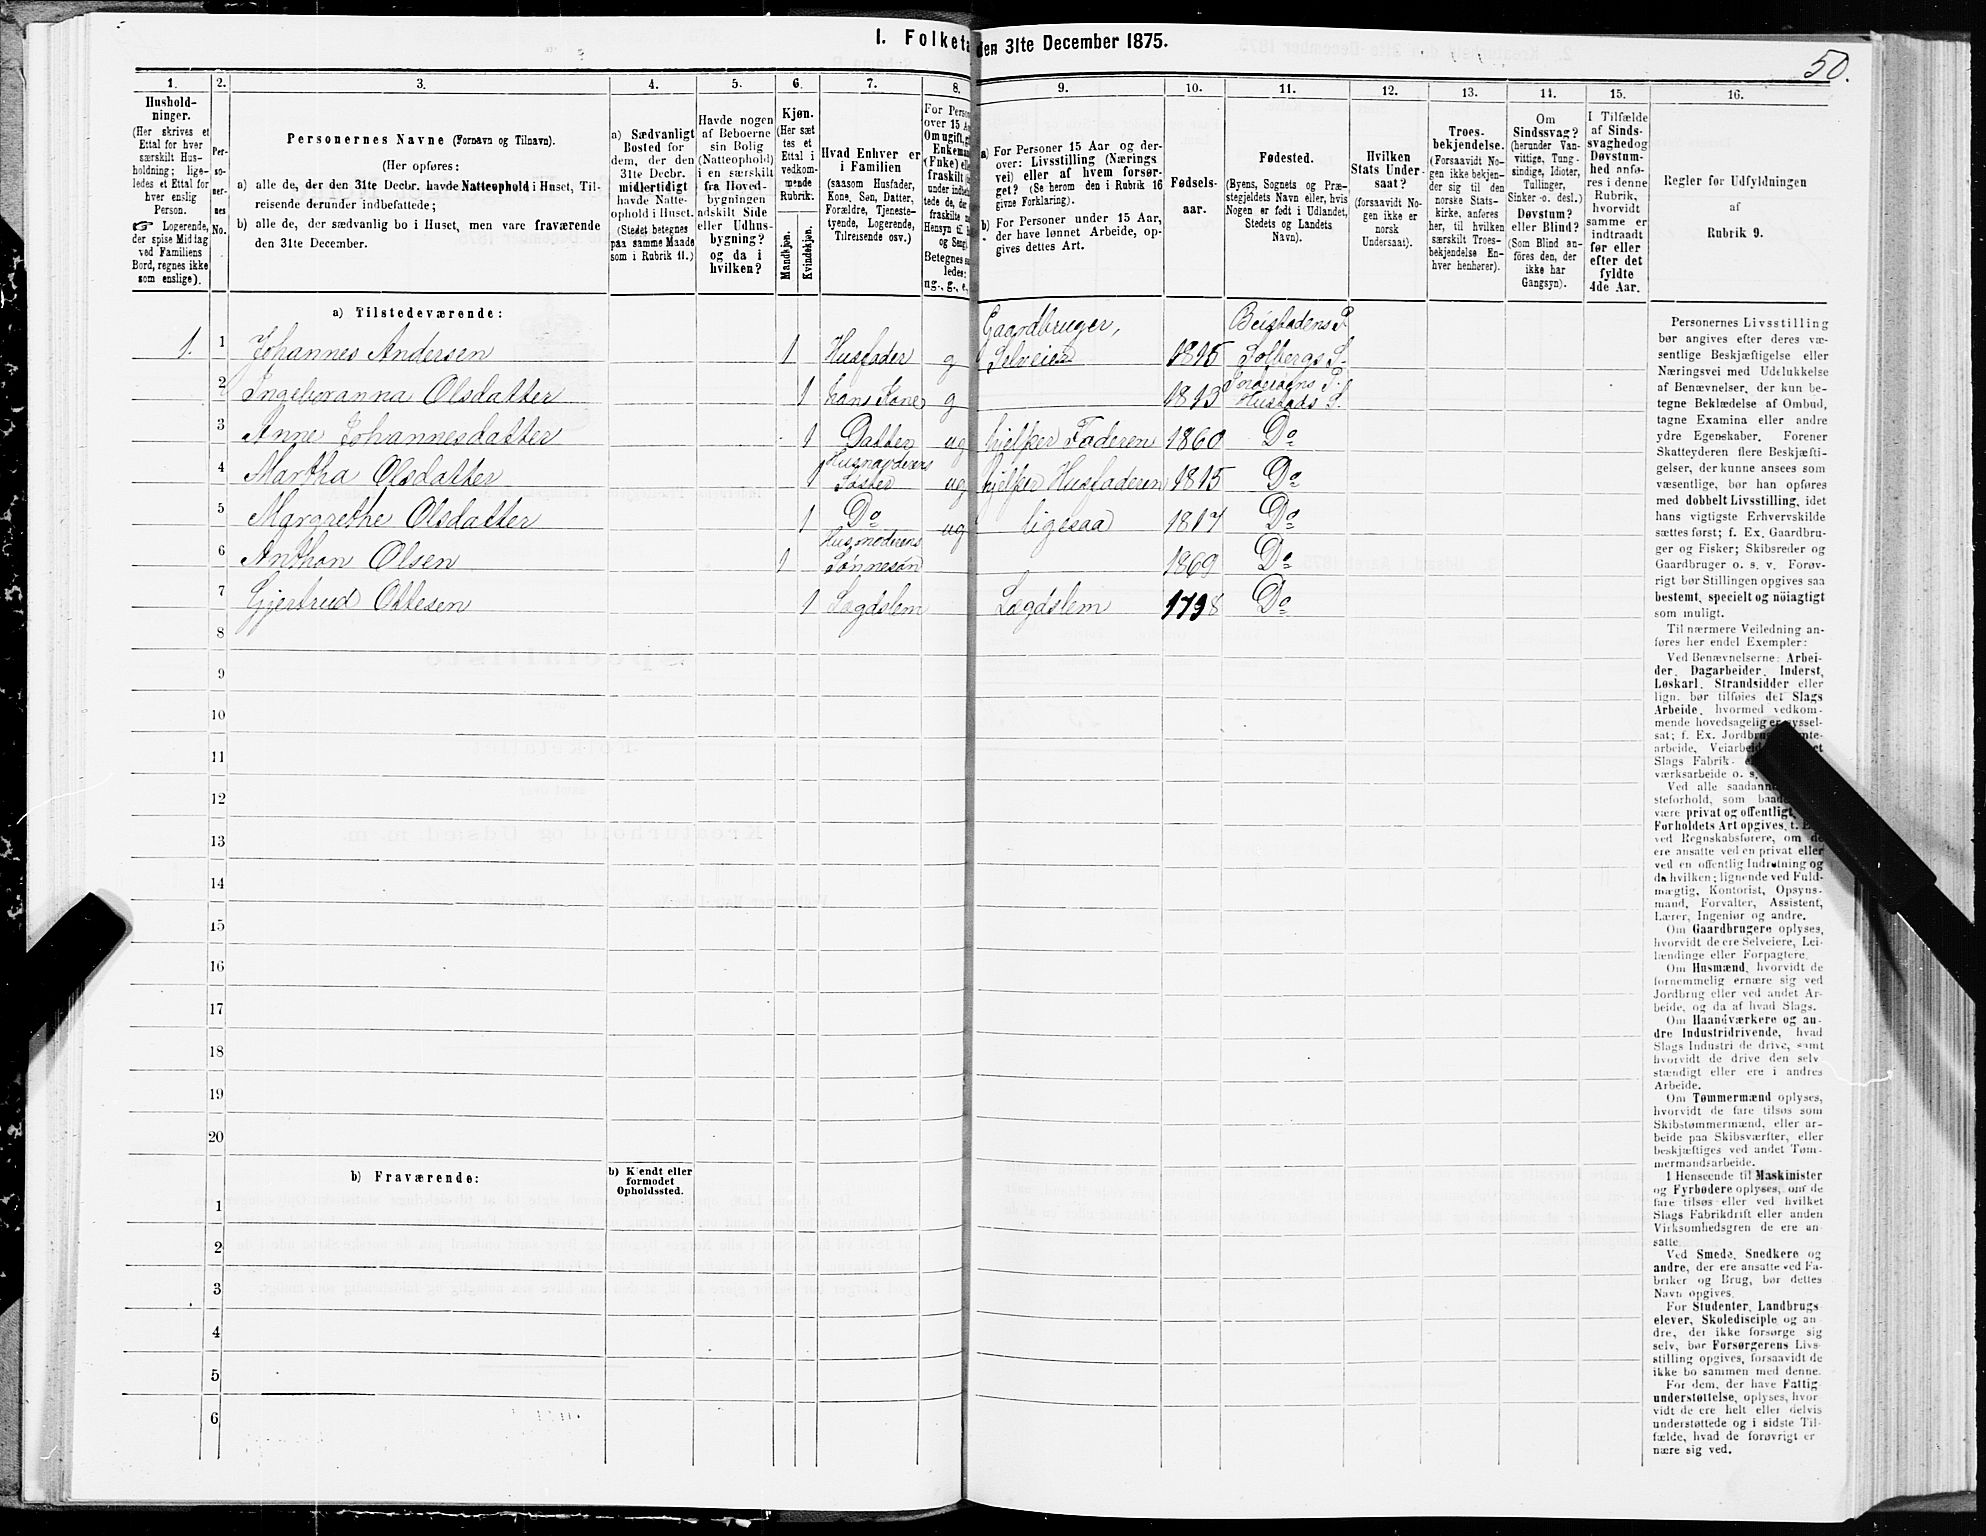 I. Folketæ
den 31te December 1875.
50.
1.
2.
3.
4.
5.
6.
7.
8.
9.
10.
11.
12.
13.
14.
15.
16.
Hushold-
ninger.
(Her skrives et
Ettal for hver
særskilt Hus-
holdning; lige-
ledes et Ettal for
hver enslig
Person.
☞ Logerende,
der spise Middag
ved Familiens
Bord, regnes ikke
som enslige).
Per-
so-
ner-
nes
No.
Personernes Navne (Fornavn og Tilnavn).
(Her opføres:
a) alle de, der den 31te Decbr. havde Natteophold i Huset, Til-
reisende derunder indbefattede;
b) alle de, der sædvanlig bo i Huset, men vare fraværende
den 31te December.
a) Sædvanligt
Bosted for
dem, der den
31te Decbr.
midlertidigt
havde Natte-
ophold i Huset.
(Stedet betegnes
paa samme Maade
som i Rubrik 11.)
Havde nogen
af Beboerne
sin Bolig
(Natteophold)
i en særskilt
fra Hoved-
bygningen
adskilt Side
eller Udhus-
bygning?
og da i
hvilken?
Kjøn.
(Her sæt
tes et
Ettal i
vedkom-
mende
Rubrik.
Mandkjøn.
Kvindekjøn.
Hvad Enhver er
i Familien
(saasom Husfader,
Kone, Søn, Datter,
Forældre, Tjeneste-
tyende, Logerende,
Tilreisende osv.)
For Perso
over 15 A
Om ugift, g
Enkeman
(Enke) el
fraskilt
Betegnes sa
ledes:
ug., g., e.,
a) For Personer 15 Aar og der-
over: Livsstilling (Nærings
vei) eller af hvem forsør-
get? (Se herom den i Rubrik 16
givne Forklaring).
b) For Personer under 15 Aar,
der have lønnet Arbeide, op-
gives dettes Art.
Fødsels-
aar.
Fødested.
(Byens, Sognets og Præ-
stegjeldets Navn eller, hvis
Nogen er født i Udlandet,
Stedets og Landets
Navn).
Hvilken
Stats Under-
saat?
(forsaavidt No-
gen ikke er
norsk
Undersaat).
Troes-
bekjendelse.
(Forsaavidt No-
gen ikke bekjen-
der sig til den
norske Stats-
kirke, anføres
her, til hvilken
særskilt Troes-
bekjendelse En-
hver henhører).
Om
Sindssvag?
(herunder Van-
vittige, Tung-
sindige, Idioter,
Tullinger,
Sinker o. desl.)
Døvstum?
eller Blind?
(Som Blind an-
føres den, der
ikke har
Gangsyn).
I Tilfælde
af Sinds-
svaghed og
Døvstum-
hed anfø-
res i denne
Rubrik,
hvorvidt
samme er
indtraadt
før eller
efter det
fyldte
4de Aar.
Regler for Udfyldningen
af
Rubrik 9.
a) Tilstedeværende:
1. 1 Johannes Andersen 1 Husfader g Gaardbruger, Selveier 1815 Beistadens P. Solbergs S.
2 Ingeboranna Olsdatter 1 hans Kone g 1813 Inderøens P. Hustads S.
3 Anne Johannesdatter 1 Datter ug hjelper Faderen 1860 Do
4 Martha Olsdatter 1 Husmoderens Søster ug hjelper Husfaderen 1815 Do
5 Margrethe Olsdatter 1 Do ug ligesaa 1817 Do
6 Anthon Olsen 1 Husmoderens Sønnesøn 1869 Do
7 Gjertrud Ottesen 1 Lægdslem Lægdslem 1798 Do
8
9
10
11
12
13
14
15
16
17
18
19
20
b) Fraværende:
b) Kjendt eller
formodet
Opholdssted.
1
2
3
4
5
6
Personernes Livsstilling
bør angives efter deres væ-
sentlige Beskjæftigelse eller
Næringsvei med Udelukkelse
af Benævnelser, der kun be-
tegne Beklædelse af Ombud,
tagne Examina eller andre
ydre Egenskaber. Forener
Skatteyderen flere Beskjæfti-
gelser, der kunne ansees som
væsentlige, bør han opføres
med dobbelt Livsstilling, idet
hans vigtigste Erhvervskilde
sættes først; f. Ex. Gaardbru-
ger og Fisker; Skibsreder og
Gaardbruger o. s. v. Forøv-
rigt bør Stillingen opgives saa
bestemt, specielt og nöiagtigt
som muligt.
Til nærmere Veiledning an-
føres her endel Exempler:
Ved Benævnelserne: Arbei-
der, Dagarbeider, Inderst,
Løskarl, Strandsidder eller
lign. bør tilføies det Slags
Arbeide, hvormed vedkom-
mende hovedsagelig er syssel-
sat; f. Ex. Jordbrug
arbeide, Veiarbeide
Slags Fabrik-
værksarbeide o. s.
Ved alle saadanne
steforhold, som baade
være privat og offentligt,
Forholdets Art opgives, t.
ved Regnskabsførere, om de
ere ansatte ved en privat eller
ved en offentlig Indretning og
da hvilken; lignende ved Fuld-
mægtig, Kontorist, Opsyns-
mand, Forvalter, Assistent,
Lærer, Ingeniør og andre.
Om Gaardbrugere oplyses,
hvorvidt de ere Selveiere, Lei-
lændinge eller Forpagtere.
Om Husmænd, hvorvidt de
fornemmelig ernære sig ved
Jordbrug eller ved andet Ar-
beide, og da af hvad Slags.
Om Haandværkere og an-
dre Industridrivende, hvad
Slags Industri de drive, samt
hvorvidt de drive den selv
stændigt eller ere i andres
Arbeide.
Om Tømmermænd oplyses,
hvorvidt de fare tilsøs som
Skibstømmermænd, eller ar-
beide paa Skibsværfter, eller
beskjæftiges ved andet Tøm-
mermandsarbeide.
I Henseende til Maskinister
og Fyrbødere oplyses, om de
fare tilsøs eller ved hvilket
Slags Fabrikdrift eller anden
Virksomhedsgren de ere an-
satte.
Ved Smede, Snedkere og
andre, der ere ansatte ved Fa-
briker og Brug, bør dettes
Navn opgives.
For Studenter, Landbrugs
elever, Skoledisciple og an
dre, der ikke forsørge sig
selv, bør Forsørgerens Livs
stilling opgives, forsaavidt de
ikke bo sammen med denne.
For dem, der have Fattig
understøttelse, oplyses, hvor
vidt de ere helt eller delvis
understøttede og i sidste Til-
fælde, hvad de forøvrigt er
nære sig ved.